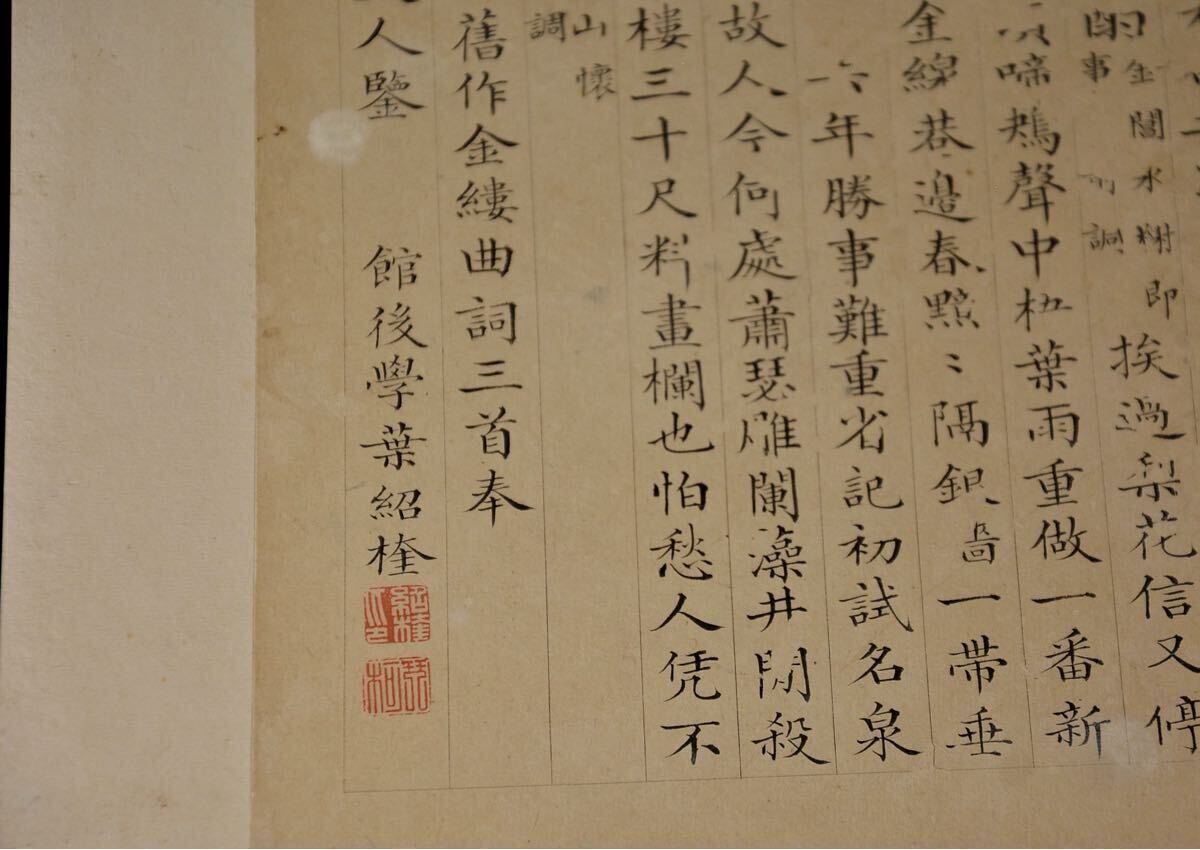 挨過梨花信又停
事
闔水榭即
啼鴂聲中杜葉雨重做一番新
金線巷邊春黯〻隔銀啚一帶垂
六年勝事難重省記初試名泉
故人今何處蕭瑟雕闌藻井閒殺
樓三十尺料畫欄也怕愁人凭不
山懷
調
舊作金縷曲詞三首奉
人鑒
館後學葉紹楏
紹楏
琴柯